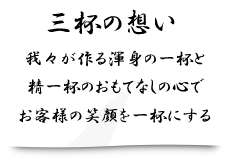 三杯の想い
我々が作る渾身の一杯と
精一杯のおもてなしの心で
お客様の笑顔を一杯にする